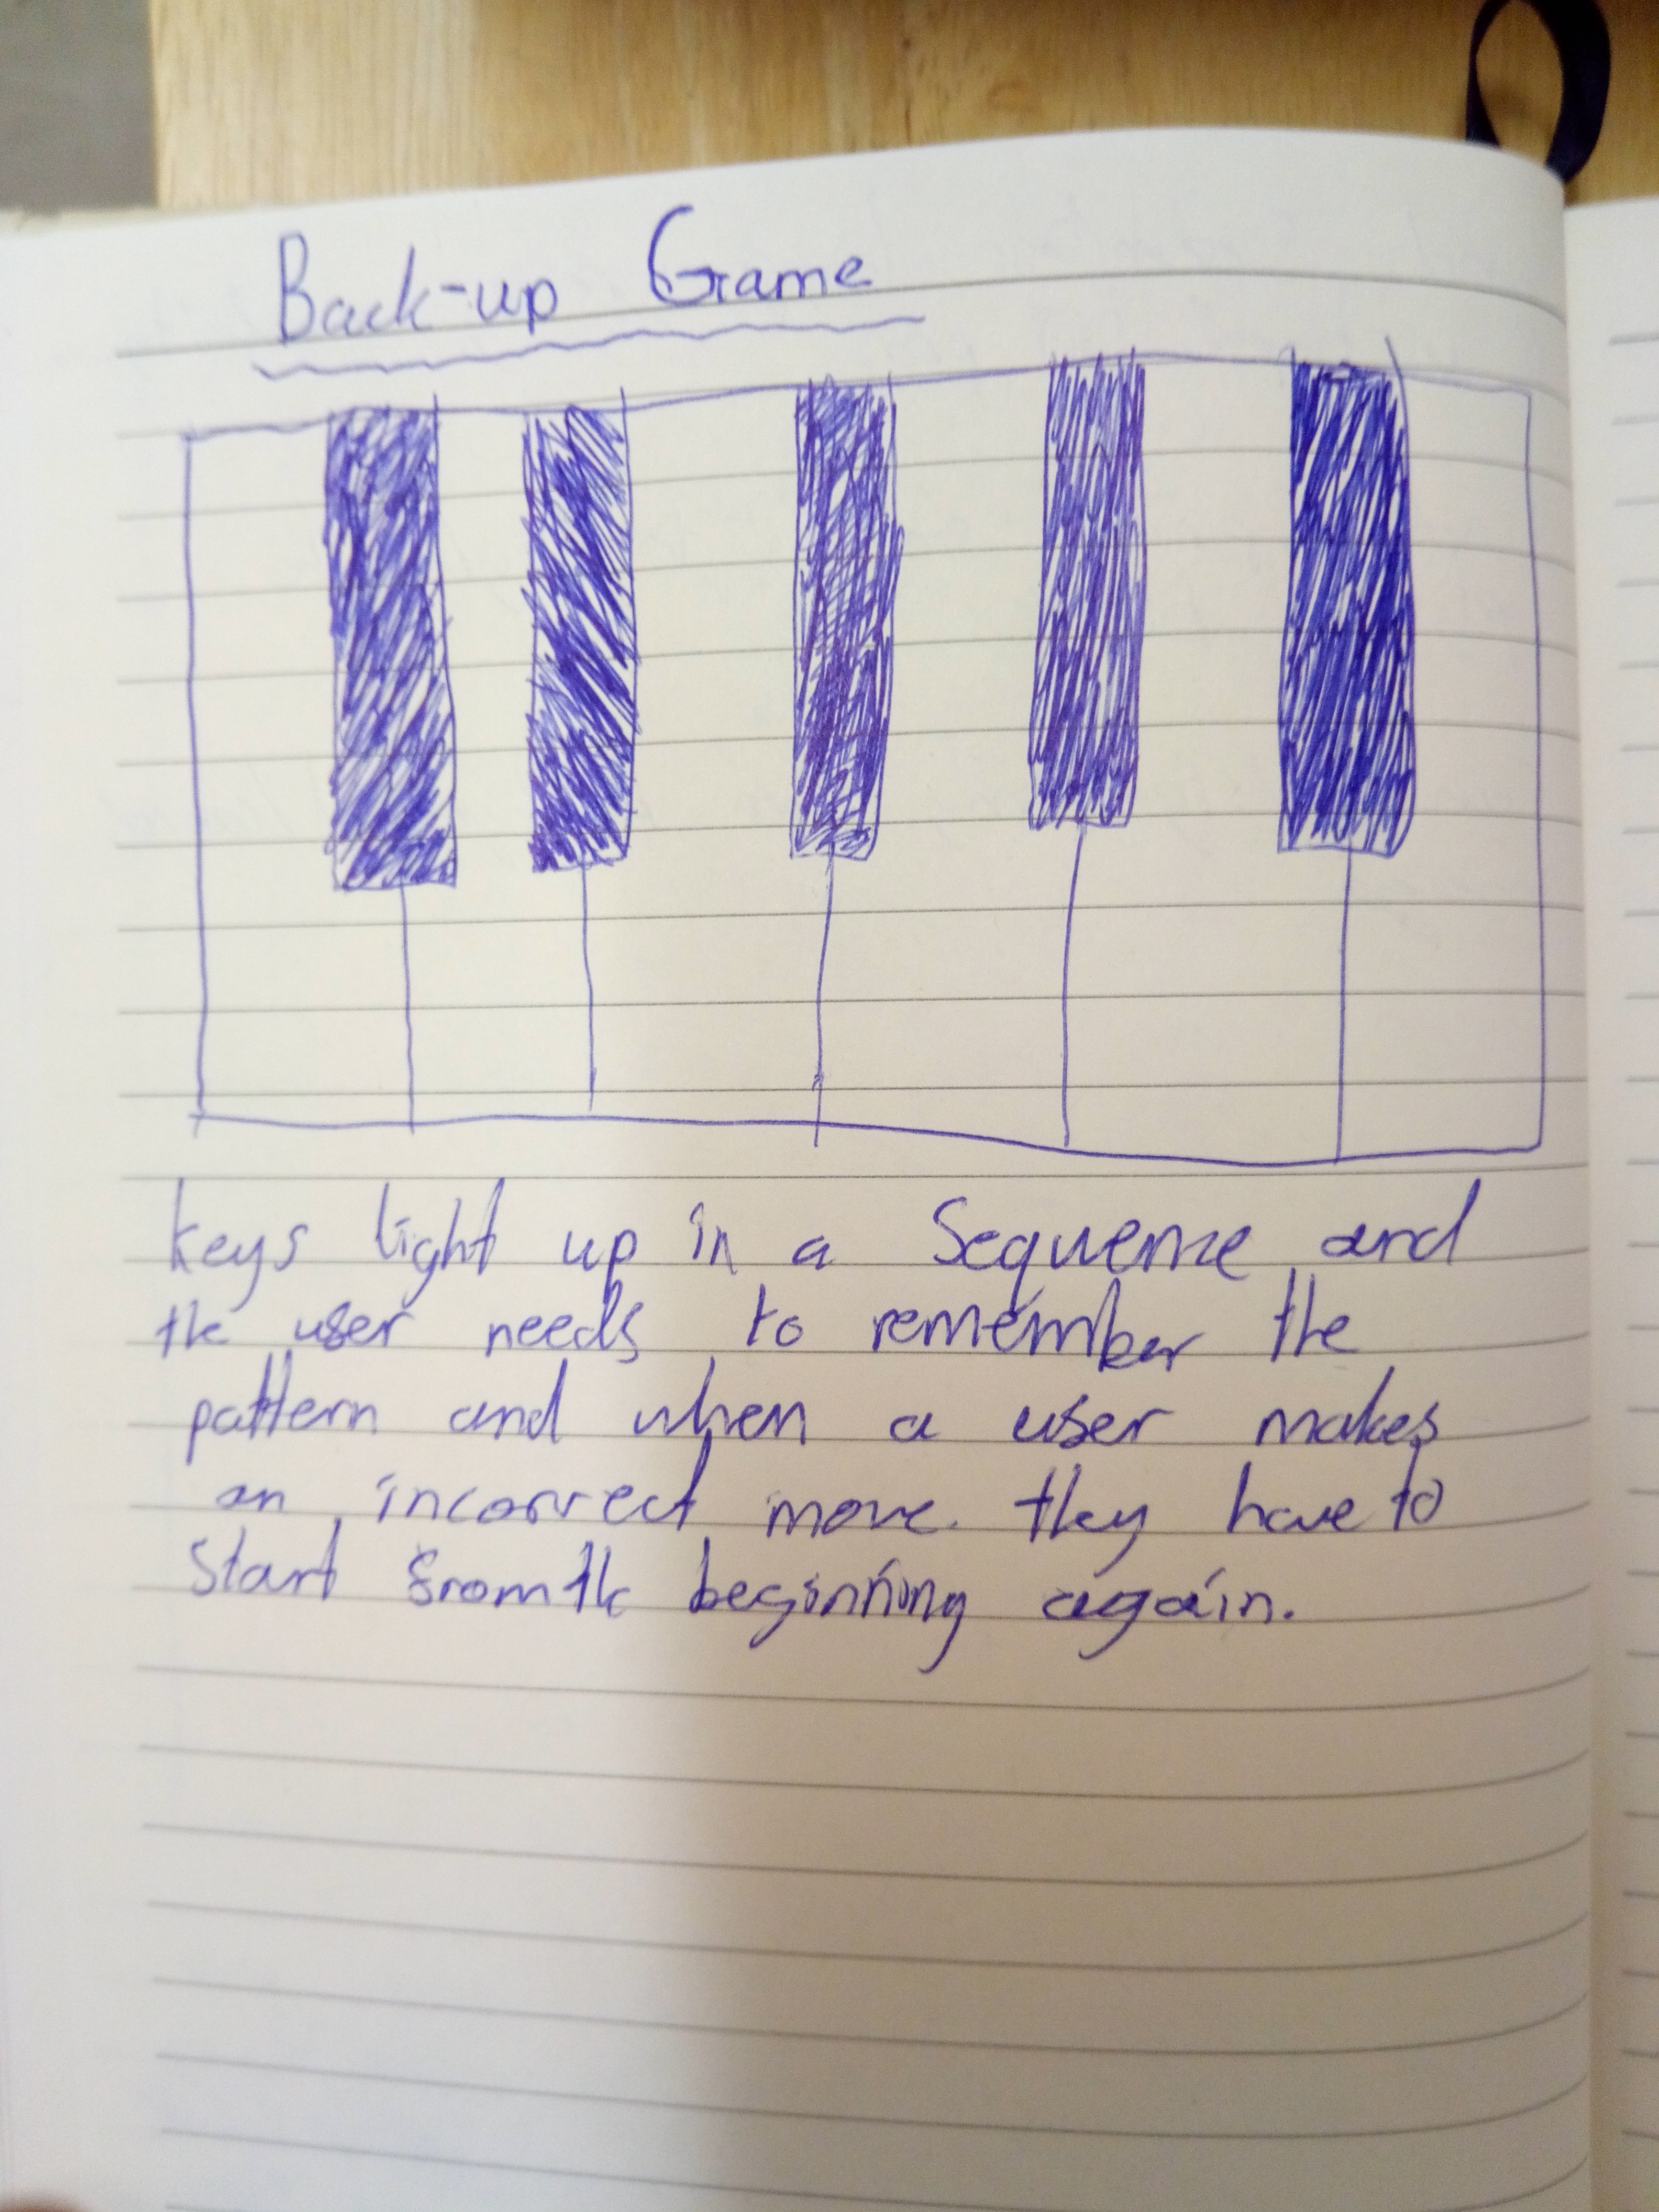 Back-up Game
keys light up in a Sequence and
the user needs to remember the
pattern and when a user makes
an incorrect move they have to
Start from the beginning again.